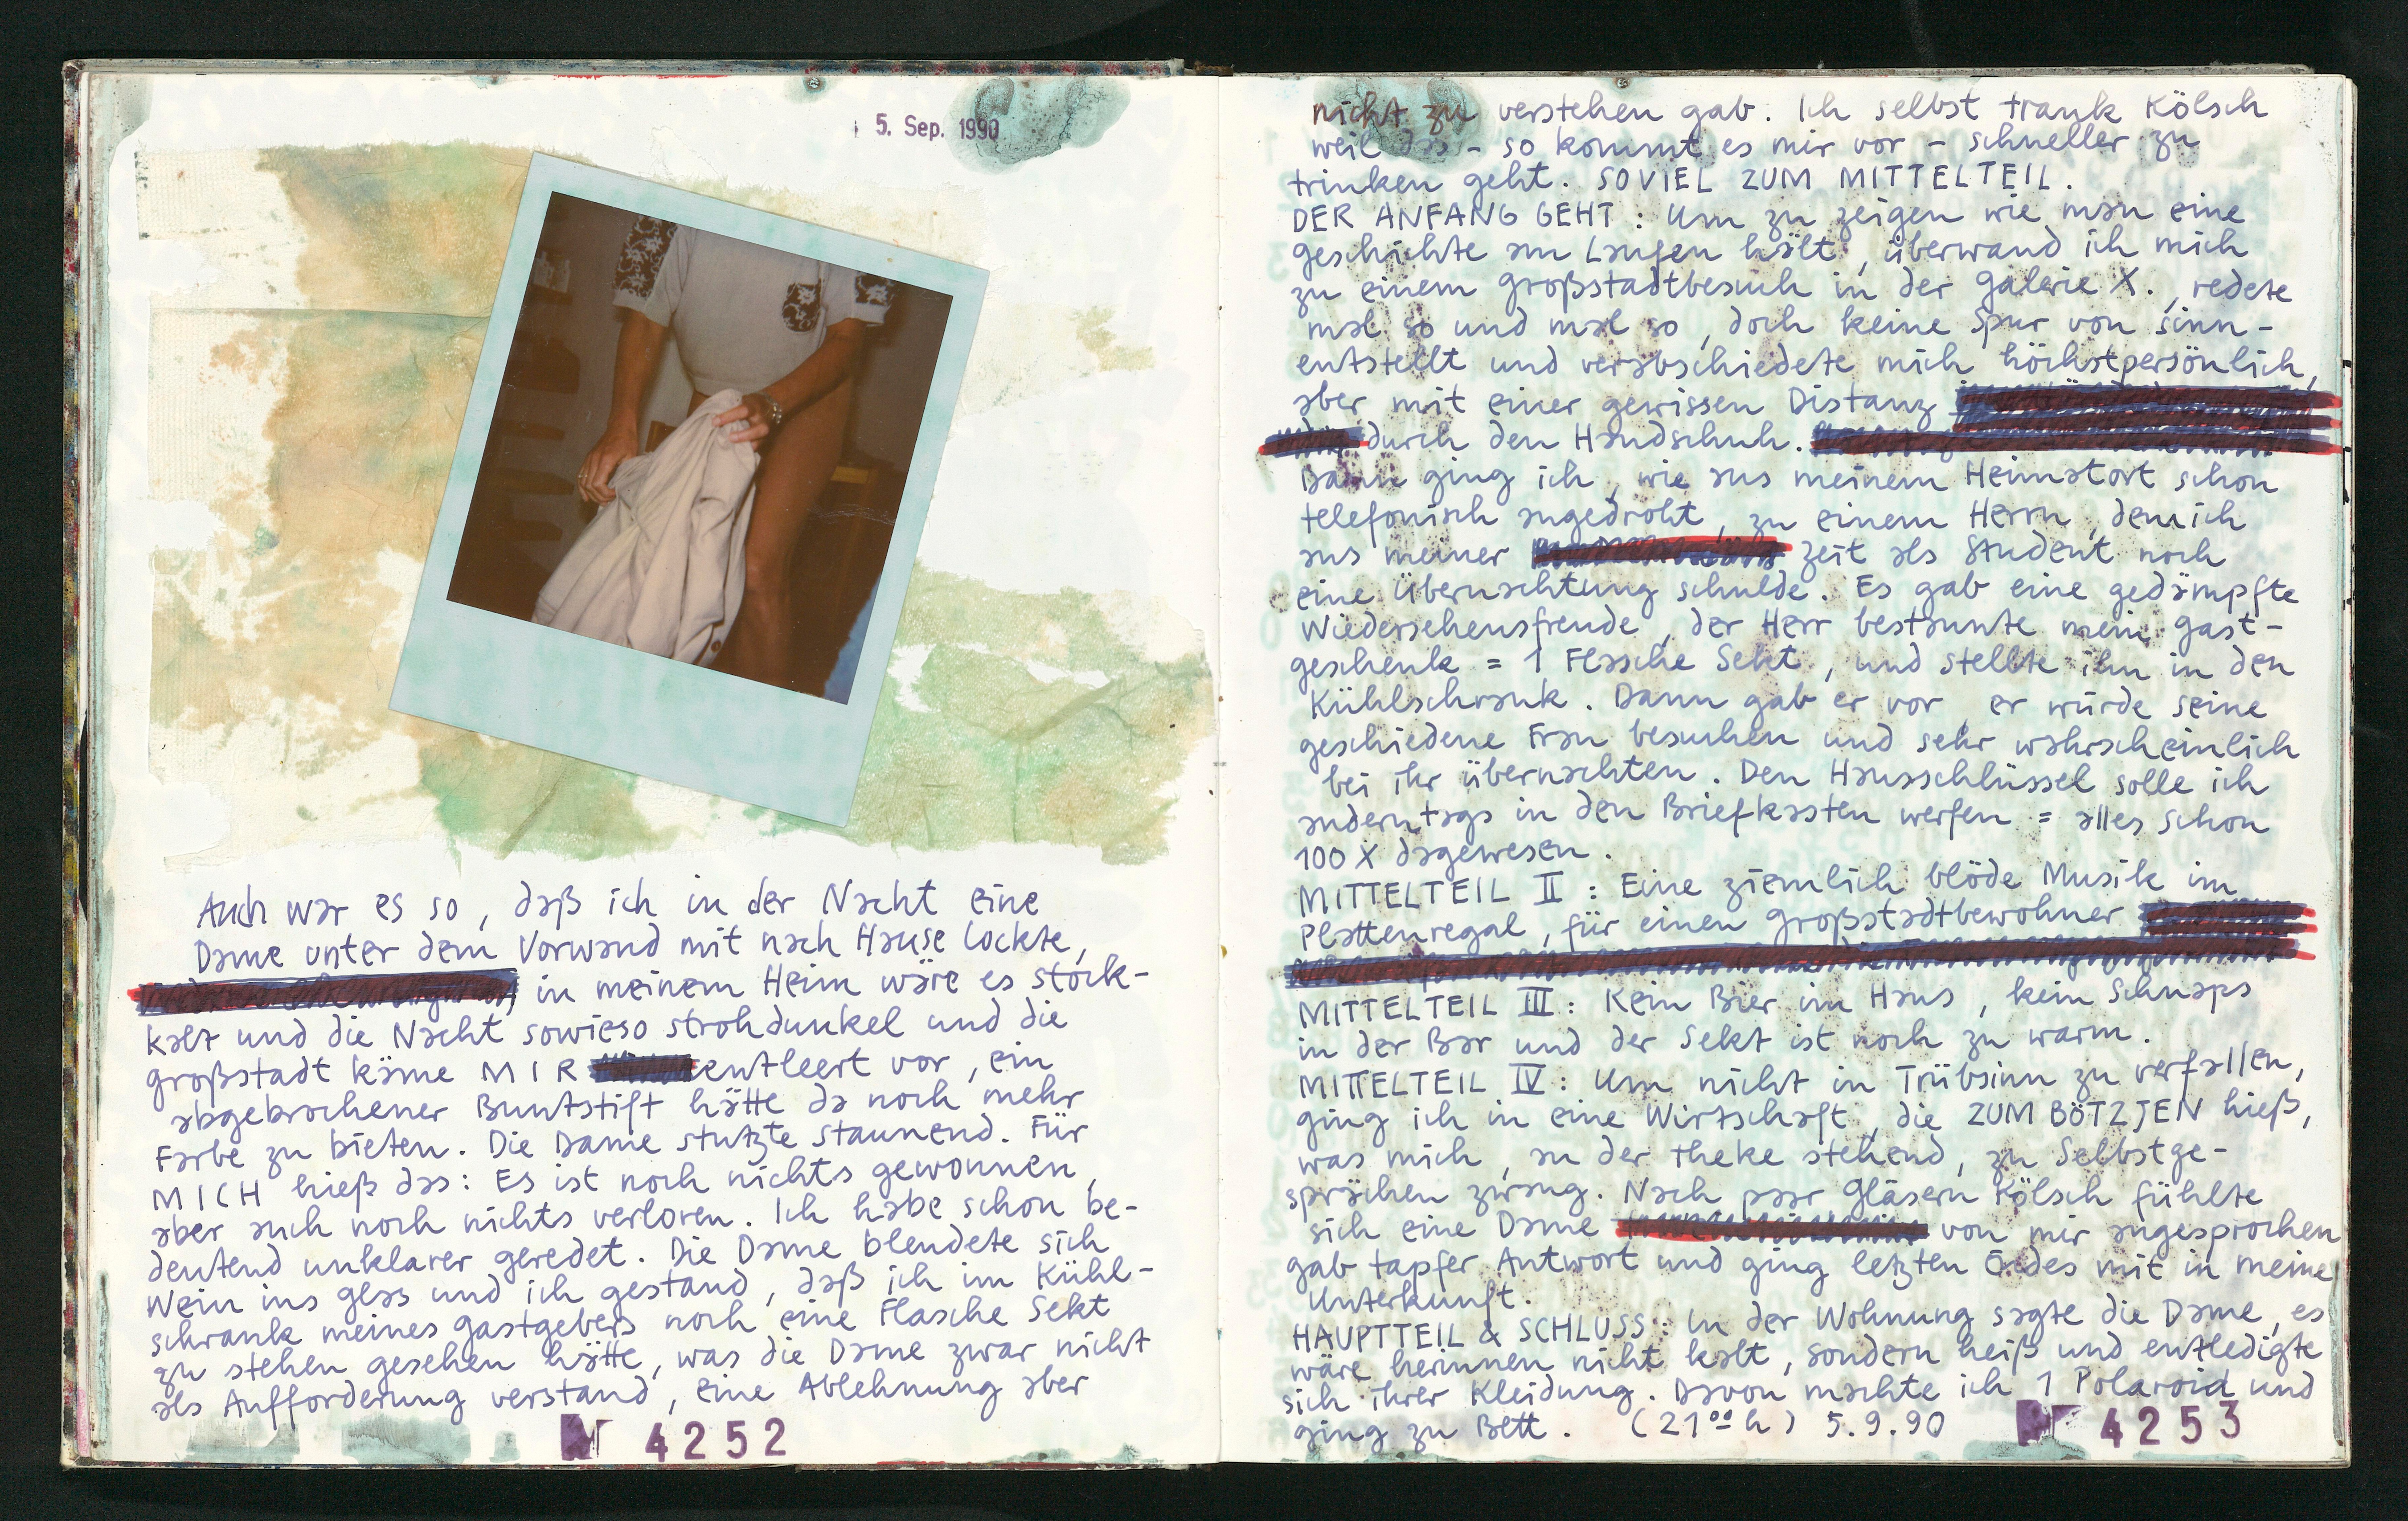 5. Sep. 1990
Auch war es so, daß ich in der Nacht eine
Dame unter dem Vorwand mit nach Hause lockte,
in meinem Heim wäre es stock-
kalt und die Nacht sowieso strohdunkel und die
großstadt käme MIR entleert vor, ein
abgebrochener Buntstift hätte da noch mehr
Farbe zu bieten. Die Dame stutzte staunend. Für
MICH hieß das: Es ist noch nichts gewonnen,
aber auch noch nichts verloren. Ich habe schon be-
deutend unklarer geredet. Die Dame blendete sich
Wein ins glas und ich gestand, daß ich im Kühl-
schrank meines gastgebers noch eine Flasche Sekt
zu stehen gesehen hätte, was die Dame zwar nicht
als Aufforderung verstand, eine Ablehnung aber
4252
nicht zu verstehen gab. Ich selbst trank Kölsch
weil das - so kommt es mir vor - schneller zu
trinken geht. SOVIEL ZUM MITTELTEIL.
DER ANFANG GEHT: Um zu zeigen wie man eine
geschichte am Laufen hält, überwand ich mich
zu einem großstadtbesuch in der galerie X., redete
mal so und mal so, doch keine Spur von sinn-
entstellt und verabschiedete mich höchstpersönlich,
aber mit einer gewissen Distanz
durch den Handschuh.
Dann ging ich, wie aus meinem Heimatort schon
telefonisch angedroht, zu einem Herrn, dem ich
aus meiner zeit als Student noch
eine Übernachtung schulde. Es gab eine gedämpfte
Wiedersehensfreude, der Herr bestaunte mein gast-
geschenk = 1 Flasche Sekt, und stellte ihn in den
Kühlschrank. Dann gab er vor, er würde seine
geschiedene Frau besuchen und sehr wahrscheinlich
bei ihr übernachten. Den Hausschlüssel solle ich
anderntags in den Briefkasten werfen = alles schon
100 X dagewesen.
MITTELTEIL II: Eine ziemlich blöde Musik im
Plattenregal, für einen großstadtbewohner
MITTELTEIL III: Kein Bier im Haus, kein Schnaps
in der Bar und der Sekt ist noch zu warm.
MITTELTEIL IV: Um nicht in Trübsinn zu verfallen,
ging ich in eine Wirtschaft, die ZUM BÖTZJEN hieß,
was mich, an der Theke stehend, zu Selbstge-
sprächen zwang. Nach paar gläsern Kölsch fühlte
sich eine Dame von mir angesprochen
gab tapfer Antwort und ging letzten Endes mit in meine
Unterkunft.
HAUPTTEIL & SCHLUSS: In der Wohnung sagte die Dame, es
wäre herinnen nicht kalt, sondern heiß und entledigte
sich ihrer Kleidung. Davon machte ich 1 Polaroid und
ging zu Bett. (21⁰⁰ h) 5.9.90
4253